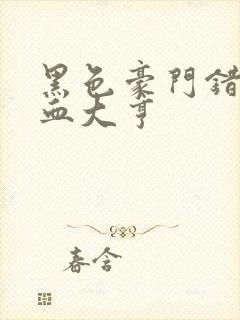 黑色豪門錯
血大亨
春含